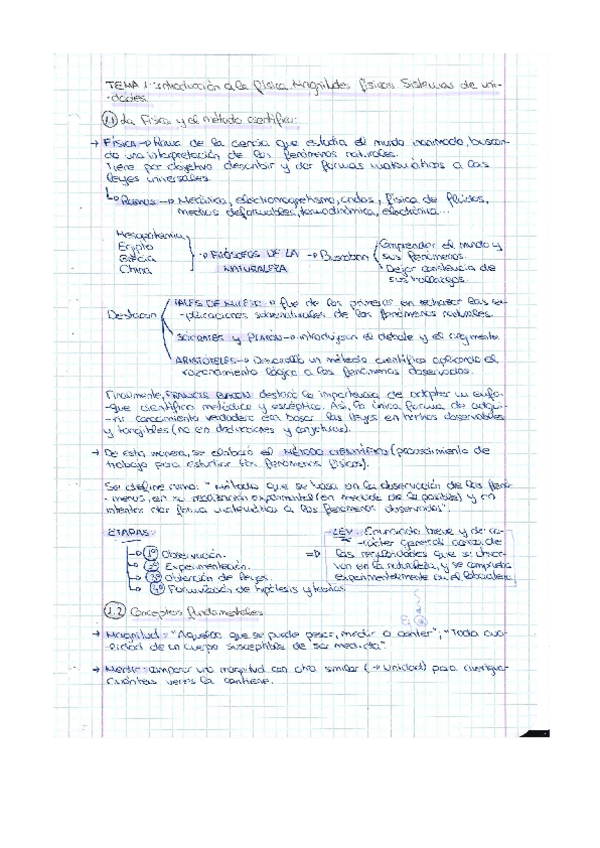 TEMA 1: Introducción a la física. Magnitudes físicas. Sistemas de uni-
-dades.
1.1 La Física y el método científico:
→ FÍSICA → Rama de la ciencia que estudia el mundo inanimado, buscan-
do una interpretación de los fenómenos naturales.
Tiene por objetivo describir y dar formas matemáticas a las
leyes universales.
↳ Ramas → Mecánica, electromagnetismo, ondas, física de fluidos,
medios deformables, termodinámica, electrónica...
Mesopotamia
Egipto
Grecia
China
→ FILÓSOFOS DE LA NATURALEZA → Buscaban
Comprender el mundo y
sus fenómenos.
Dejar constancia de
sus hallazgos.
Destacan
TALES DE MILETO → fue de los primeros en rechazar las ex-
-plicaciones sobrenaturales de los fenómenos naturales.
SÓCRATES y PLATÓN → introdujeron el debate y el argumento.
ARISTÓTELES → Desarrolló un método científico aplicando el
razonamiento lógico a los fenómenos observados.
Finalmente, FRANCIS BACON destacó la importancia de adoptar un enfo-
-que científico metódico y escéptico. Así, la única forma de adqui-
-rir conocimiento verdadero era basar las leyes en hechos observables
y tangibles (no en deducciones y conjeturas).
→ De esta manera, se elaboró el MÉTODO CIENTÍFICO (procedimiento de
trabajo para estudiar los fenómenos físicos).
Se define como: "Método que se basa en la observación de los fenó-
-menos, en su experimental (en medida de lo posible) y en
intentar dar forma matemática a los fenómenos observados".
ETAPAS:
→ 1º Observación.
→ 2º Experimentación.
→ 3º Obtención de leyes.
→ 4º Formulación de hipótesis y teorías
⇒
LEY: Enunciado breve y de ca-
-rácter general acerca de
las regularidades que se obser-
van en la naturaleza, y se comprueba
experimentalmente en el laboratorio.
1.2 Conceptos fundamentales
→ Magnitud: "Aquello que se puede pesar, medir o contar", "Toda cua-
-lidad de un cuerpo susceptible de ser medida".
→ Medir: comparar una magnitud con otra similar (→ unidad) para averiguar
cuántas veces la contiene.